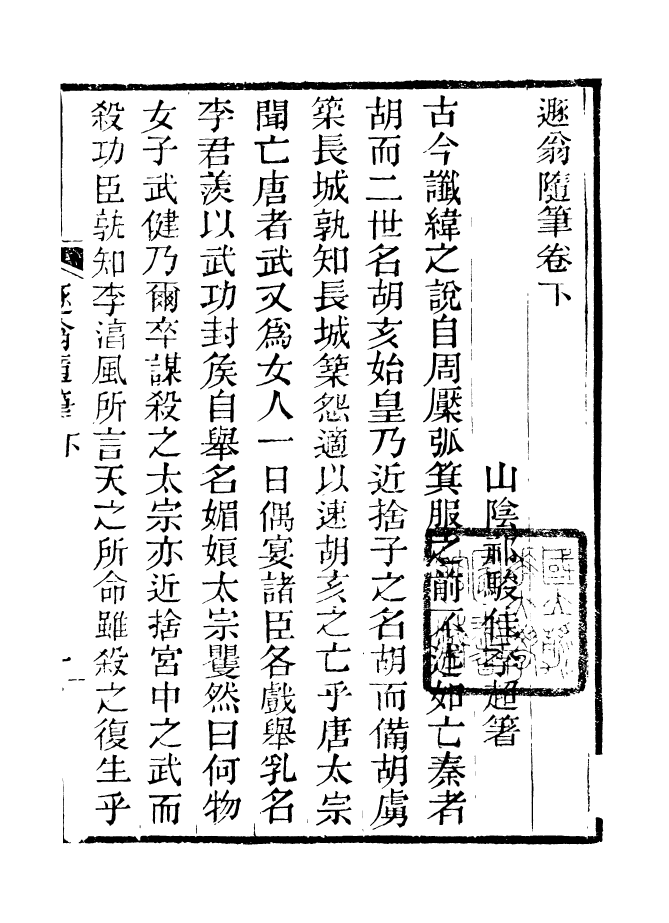 遯翁隨筆卷下
山陰祁駿佳季超著
古今讖緯之說自周檿弧箕服之前不述如亡秦者
胡而二世名胡亥始皇乃近捨子之名胡而備胡虜
築長城孰知長城築怨適以速胡亥之亡乎唐太宗
聞亡唐者武又爲女人一日偶宴諸臣各戲舉乳名
李君羨以武功封矦自舉名媚娘太宗矍然曰何物
女子武健乃爾卒謀殺之太宗亦近捨宮中之武而
殺功臣孰知李湻風所言天之所命雖殺之復生乎
遯翁隨筆 下
一